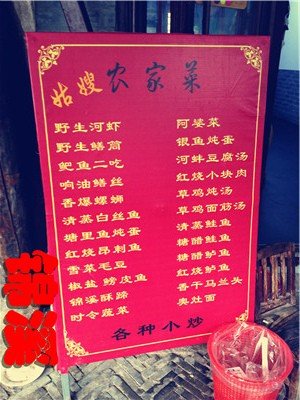 姑嫂农家菜
野生河虾
野生鳝筒
鲃鱼二吃
响油鳝丝
香爆螺蛳
清蒸白丝鱼
塘里鱼炖蛋
红烧昂刺鱼
雪菜毛豆
椒盐鳑皮鱼
锦溪酥蹄
时令蔬菜
阿婆菜
银鱼炖蛋
河蚌豆腐汤
红烧小块肉
草鸡炖汤
草鸡面筋汤
清蒸鲑鱼
糖醋鲑鱼
糖醋鲈鱼
红烧鲈鱼
香干马兰头
奥灶面
各种小炒